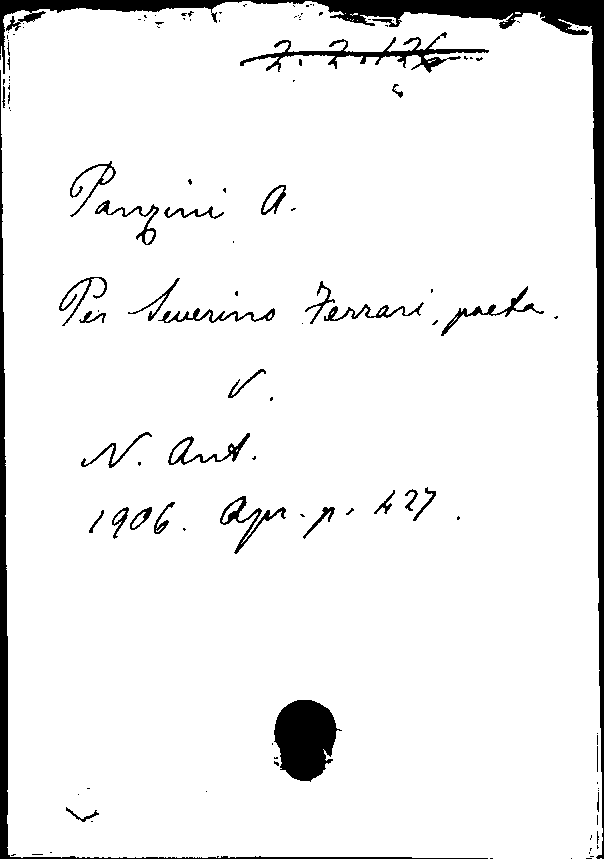 2. 2. 126
Panzini A.
Per Severino Ferrari, poeta.
V.
N. Ant.
1906. Apr. p. 427.